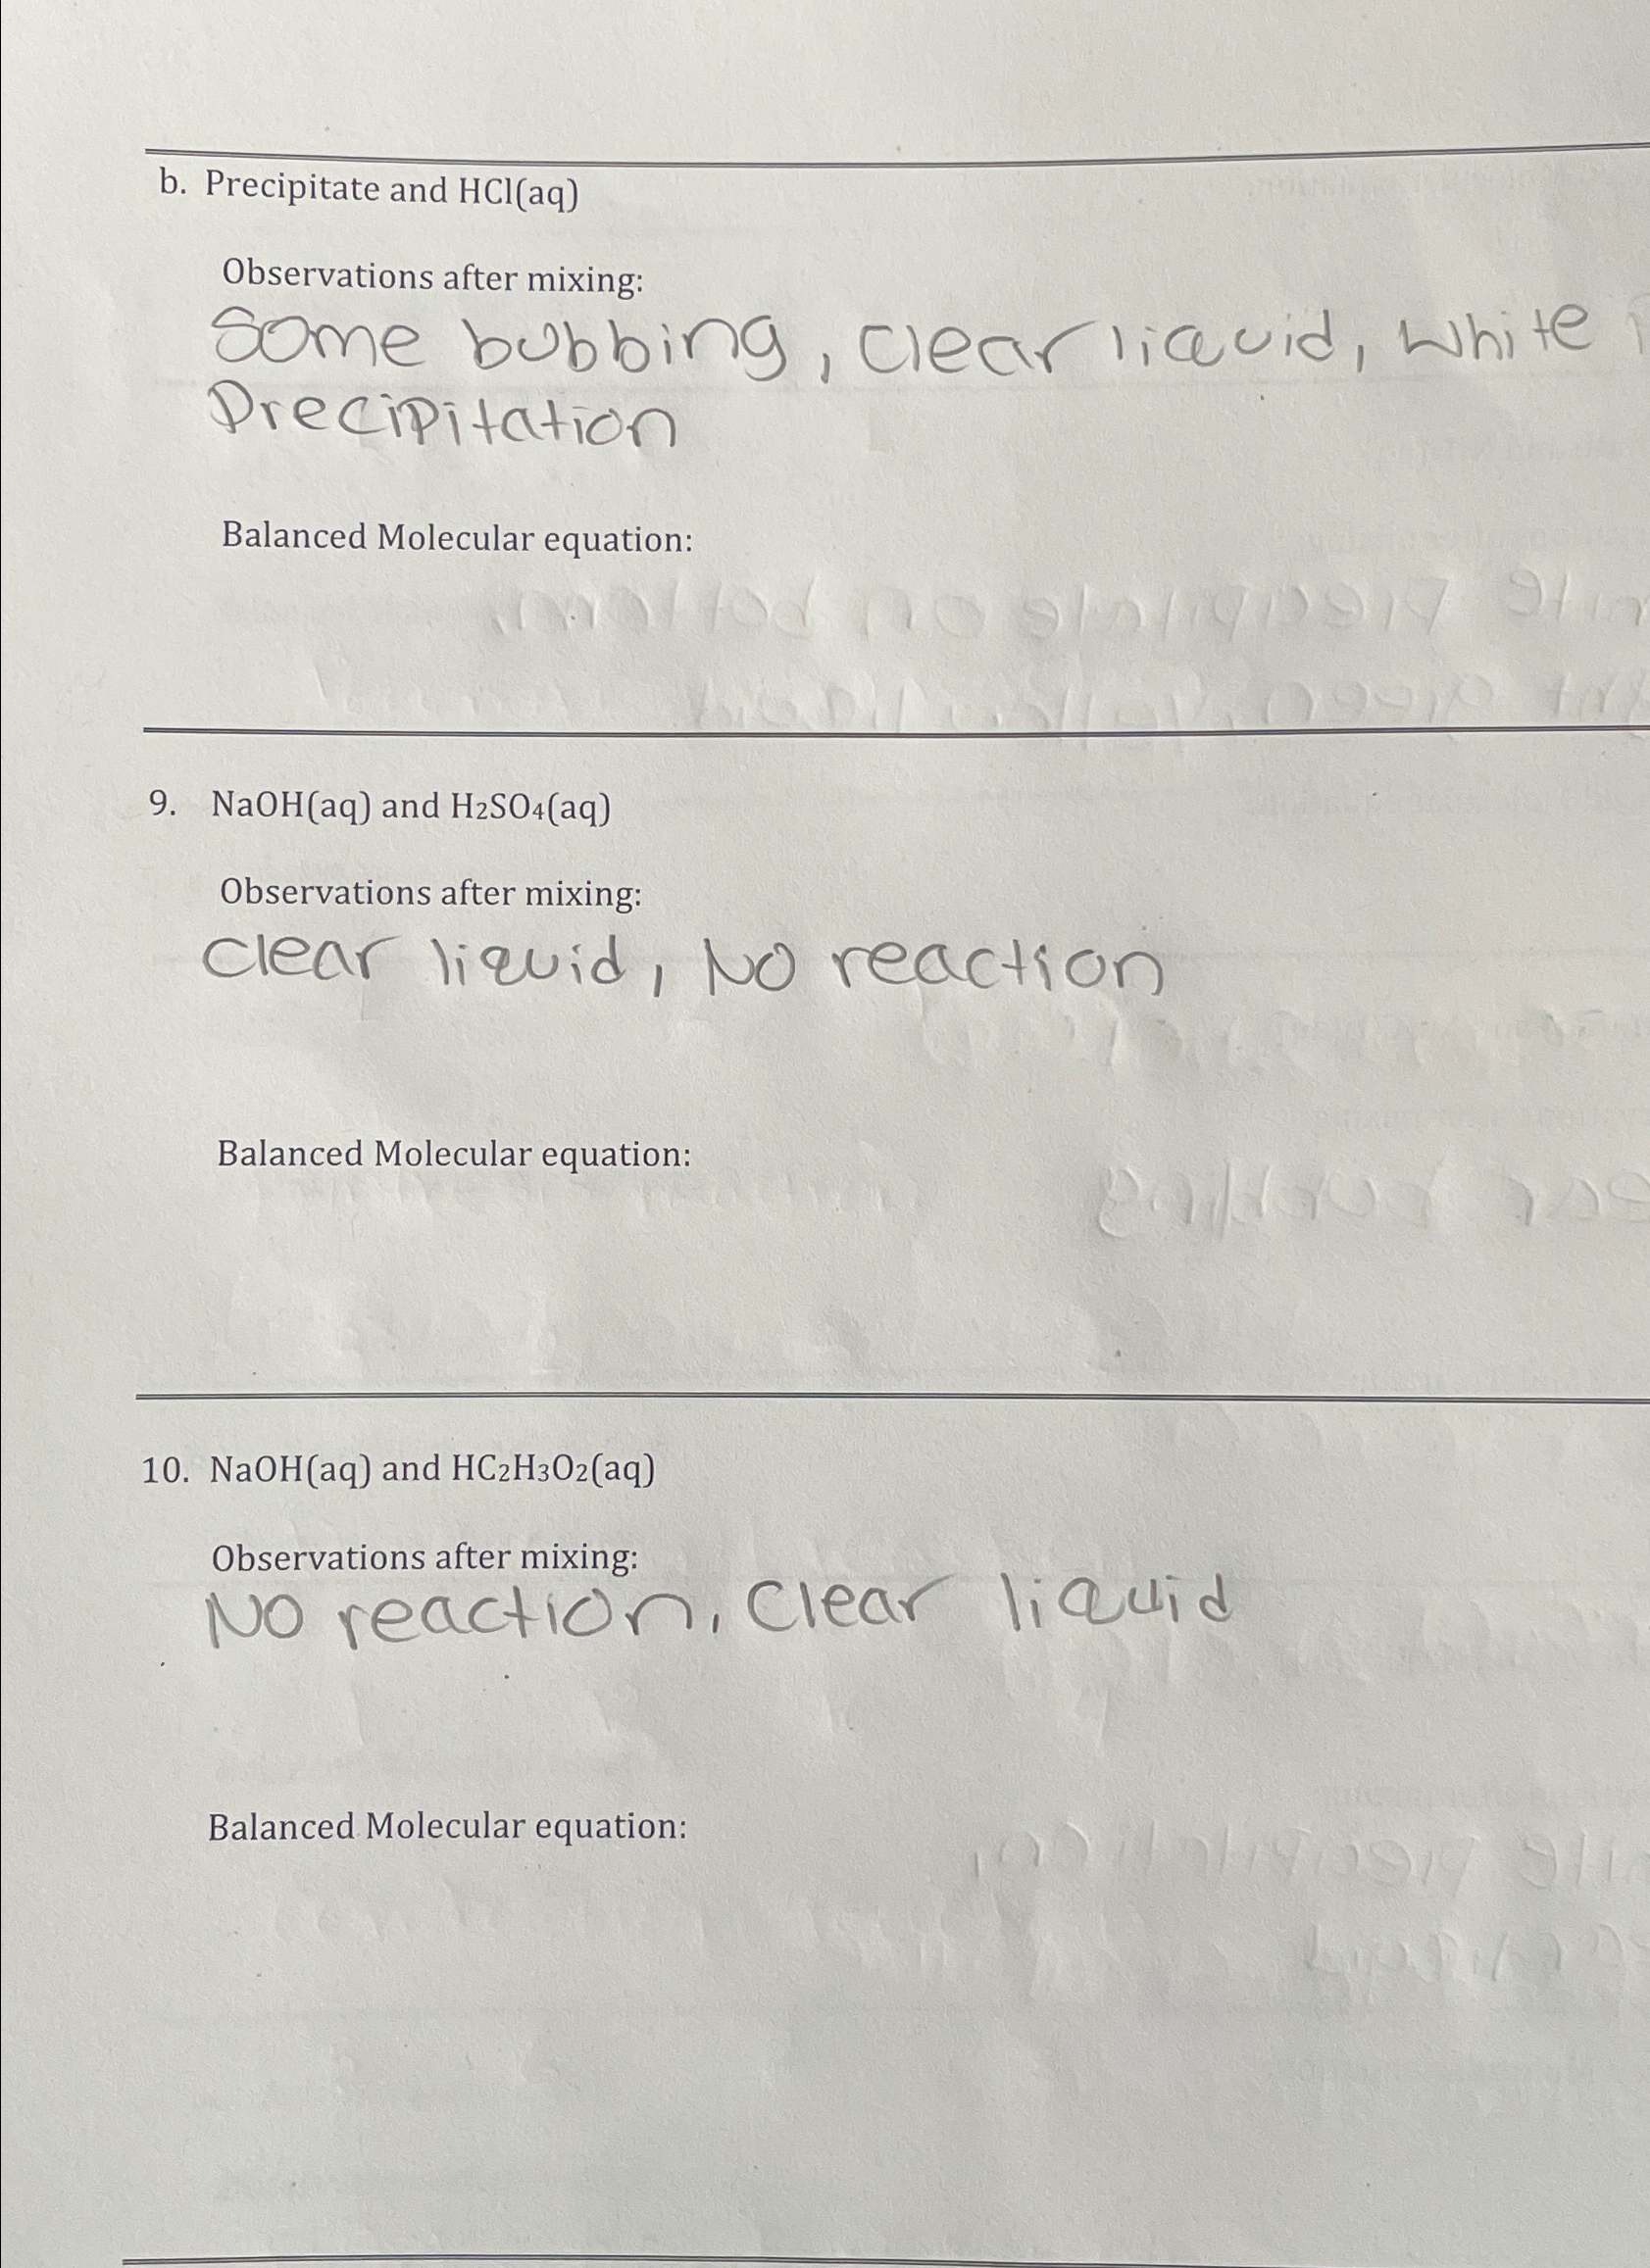 b. Precipitate and HCl(aq)
Observations after mixing:
Some bubbing, clear liquid, white
Precipitation
Balanced Molecular equation:
9. NaOH(aq) and H₂SO₄(aq)
Observations after mixing:
clear liquid, No reaction
Balanced Molecular equation:
10. NaOH(aq) and HC₂H₃O₂(aq)
Observations after mixing:
No reaction, Clear liquid
Balanced Molecular equation: